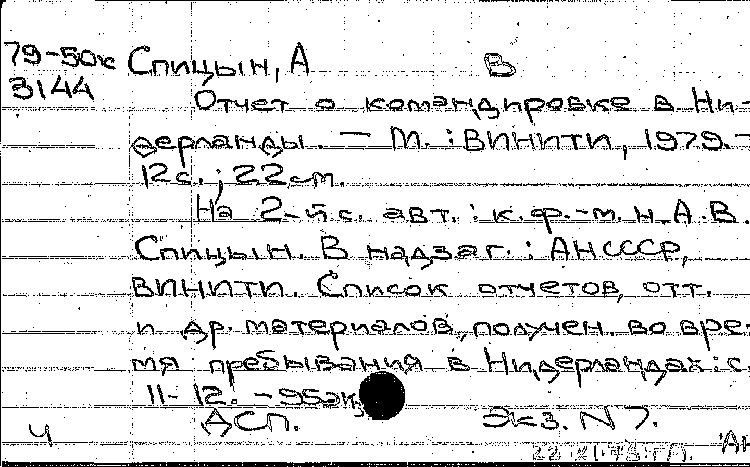 79-50к Спицын, А В
3144
Отчет о командировке в Ни-
дерланды. — М. : ВИНИТИ, 1979. -
12 с. ; 22 см.
На 2-й с. авт. : к. ф.-м. н. А. В.
Спицын. В надзаг. : АН СССР,
ВИНИТИ. Список отчетов, отт.
и др. материалов, получен. во вре-
мя пребывания в Нидерландах: с.
11-12. - 95 эк
ДСП. Экз. N 7.
Ч